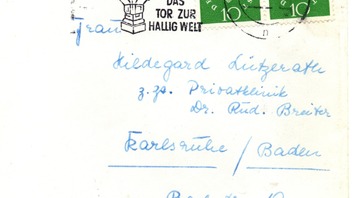 DAS
TOR ZUR
HALLIG WELT
10 10
Frau
Hildegard Lützerath
z. Zt. Privatklinik
Dr. Rud. Breiter
Karlsruhe / Baden